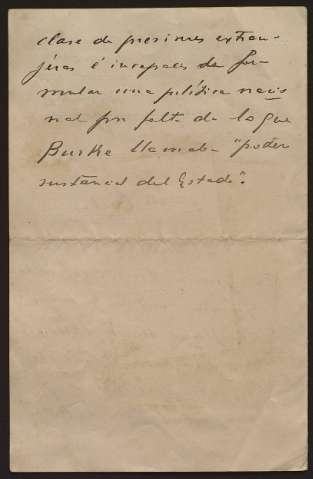 clase de presiones extran-
jeras é incapaces de for-
mular una política nacio
nal por falta de lo que
Burke llamaba "poder
sustancial del Estado".